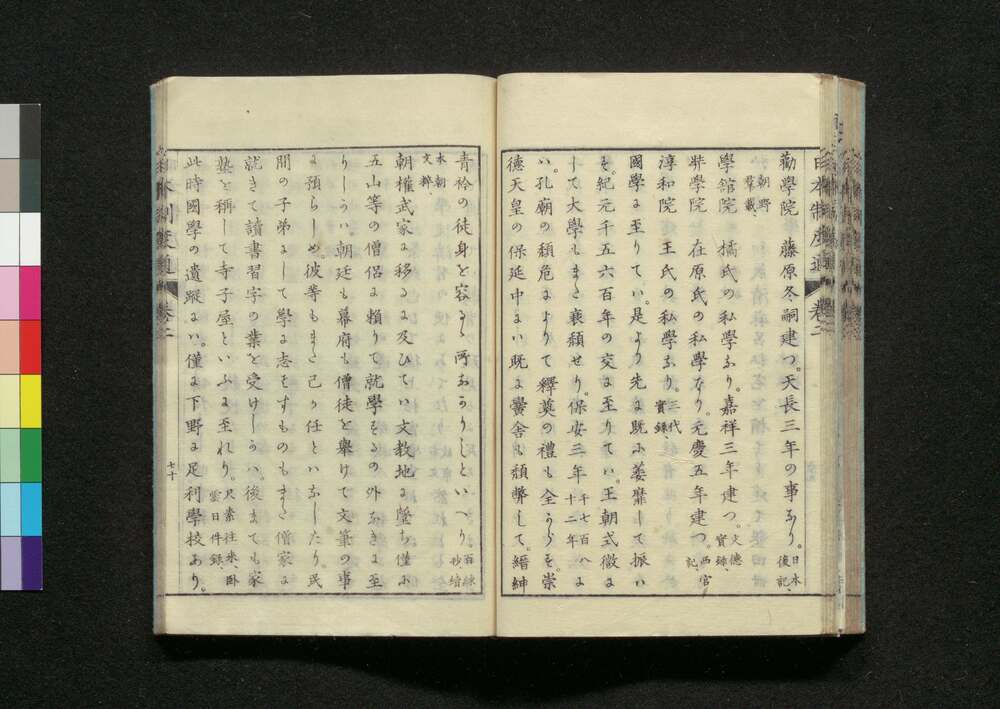 勸學院 藤原冬嗣建つ。天長三年の事なり。日本後記、
朝野羣載、
學館院 橘氏の私學なり。嘉祥三年建つ。文德實錄、
弉學院 在原氏の私學なり。元慶五年建つ。西宮記、
淳和院 王氏の私學なり。三代實錄、
國學に至りては。是より先に既に萎靡して振は
ず。紀元千五六百年の交に至りては。王朝式微に
して大學もまた衰頽せり。保安三年千七百八十二年
は。孔廟の頽危によりて釋奠の禮も全からず。崇
德天皇の保延中には既に黌舍も頽弊して。縉紳
青衿の徒身を容るゝ所なかりしといへり百練抄續
本朝文粹、
朝權武家に移るに及びては文教地に墜ち。僅に
五山等の僧侶に賴りて就學するの外なきに至
りしかは朝廷も幕府も僧徒を擧けて文筆の事
に預らしめ。彼等もまた己か任といなしたり。民
間の子弟にして學に志をすものもまた僧家に
就きて讀書習字の業を受けしかハ。後までも家
塾を稱して寺子屋といふに至れり。尺素往來、臥雲日件錄、
此時國學の遺蹤は。僅に下野に足利學校あり。
日本制度通 卷二
卷二
七十